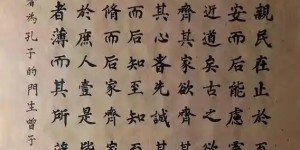 親民在止於至
安而后能慮慮
近道矣古之
齊其家欲齊
其心者先誠其
而后知至知至
脩而后家齊家
於庶人壹是皆
者薄而其所薄
者為孔子的門生曾子